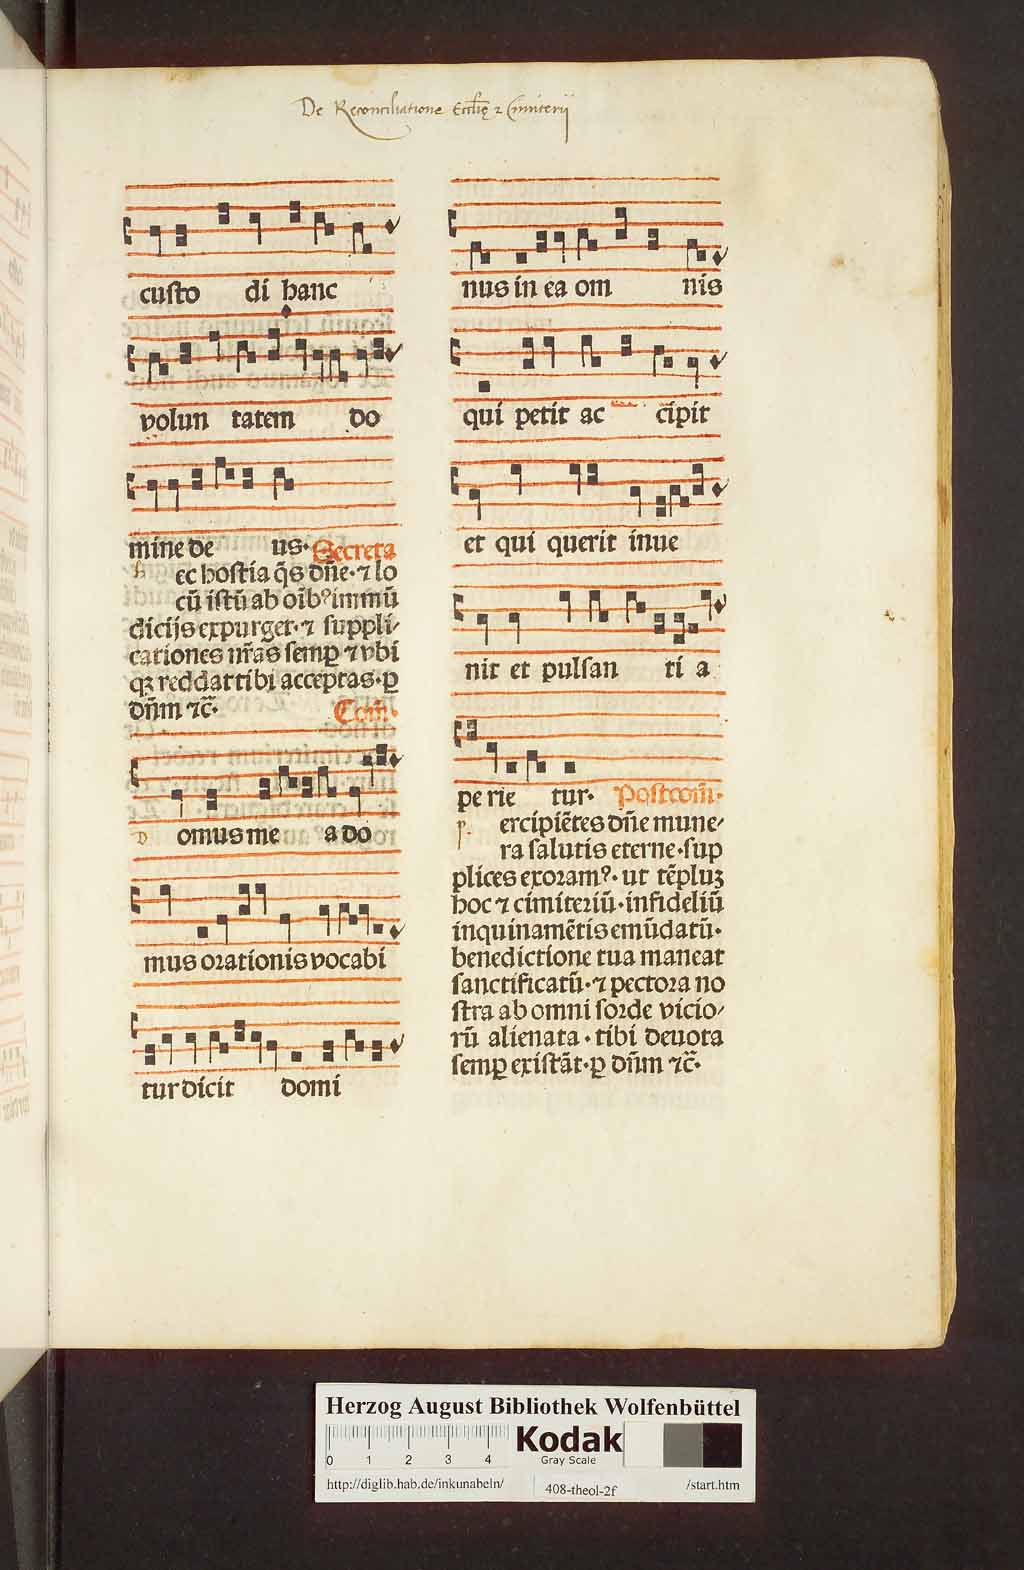 De Reconciliatione Eccl̄ię ⁊ Cimiterij
custo di hanc
volun tatem do
mine de us· Secreta
h ec hostia q̄s dn̄e·⁊ lo
cū istū ab oībꝰ immū
diciis expurget·⁊ suppli⸗
cationes nr̄as semꝑ ⁊ vbi
qꝫ reddat tibi acceptas·ꝑ
dn̄m ⁊c̄· Com̄·
D omus me a do
mus orationis vocabi
tur dicit domi
nus in ea om nis
qui petit ac cipit
et qui querit inue
nit et pulsan ti a
pe rie tur· Postcom̄·
p. ercipiētes dn̄e mune⸗
ra salutis eterne·sup
plices exoramꝰ· ut tēpluꝫ
hoc ⁊ cimiteriū·infideliū
inquinamētis emūdatū·
benedictione tua maneat
sanctificatū·⁊ pectora no
stra ab omni sorde vicio⸗
rū alienata·tibi deuota
semꝑ existāt·ꝑ dn̄m ⁊c̄·
Herzog August Bibliothek Wolfenbüttel
0 1 2 3 4 Kodak
Gray Scale
http://diglib.hab.de/inkunabeln/ 408-theol-2f /start.htm